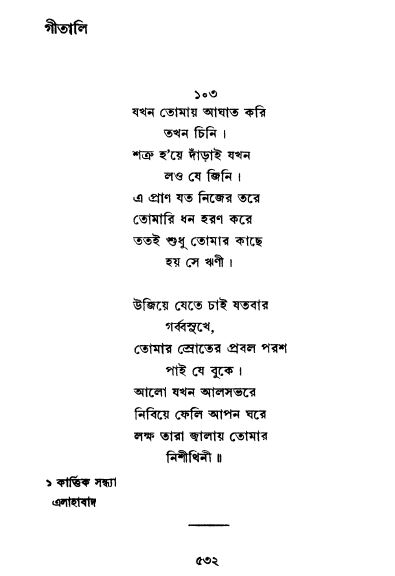 গীতালি
১০৩
যখন তোমায় আঘাত করি
তখন চিনি ।
শত্রু হ'য়ে দাঁড়াই যখন
লও যে জিনি ।
এ প্রাণ যত নিজের তরে
তোমারি ধন হরণ করে
ততই শুধু তোমার কাছে
হয় সে ঋণী ।
উজিয়ে যেতে চাই যতবার
গর্ব্বসুখে,
তোমার স্রোতের প্রবল পরশ
পাই যে বুকে ।
আলো যখন আলসভরে
নিবিয়ে ফেলি আপন ঘরে
লক্ষ তারা জ্বালায় তোমার
নিশীথিনী ॥
১ কার্ত্তিক সন্ধ্যা
এলাহাবাদ
৫৩২